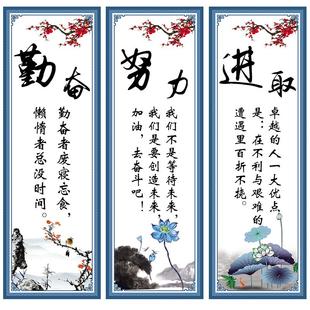 勤奋
勤奋者废寝忘食，
懒惰者总没时间。
努力
我们不是等待未来，
我们是要创造未来，
加油，去奋斗吧！
进取
卓越的人一大优点
是：在不利与艰难的
遭遇里百折不挠。